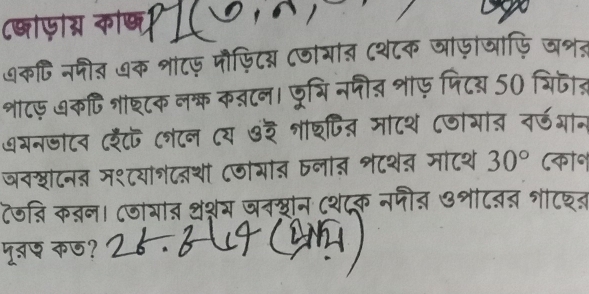 জোড়ায় কাজ
একটি নদীর এক পাড়ে দাঁড়িয়ে তোমার থেকে আড়াআড়ি অপর
পাড়ে একটি গাছকে লক্ষ করলে। তুমি নদীর পাড় দিয়ে 50 মিটার
এমনভাবে হেঁটে গেলে যে ওই গাছটির সাথে তোমার বর্তমান
অবস্থানের সংযোগরেখা তোমার চলার পথের সাথে 30° কোণ
তৈরি করল। তোমার প্রথম অবস্থান থেকে নদীর ওপারের গাছের
দূরত্ব কত? 2৮.৮৬৭ (প্রায়)